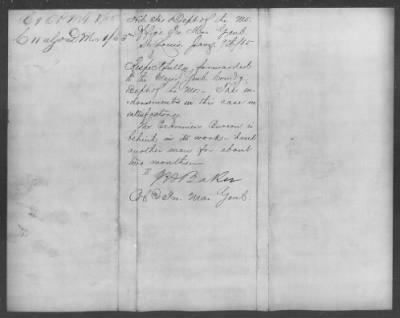 Hd Qrs Dept of the Mo.
Office Pro Mar Genl.
St Louis Jany 9th/65
Respectfully forwarded
to the Major Genl Comdg
Dept of the Mo. The in-
dorsements in this case are
satisfactory
The Examiner Bureau is
behind in its work. Need
another man for about
two months
J H Baker
Col & Pro. Mar Genl.